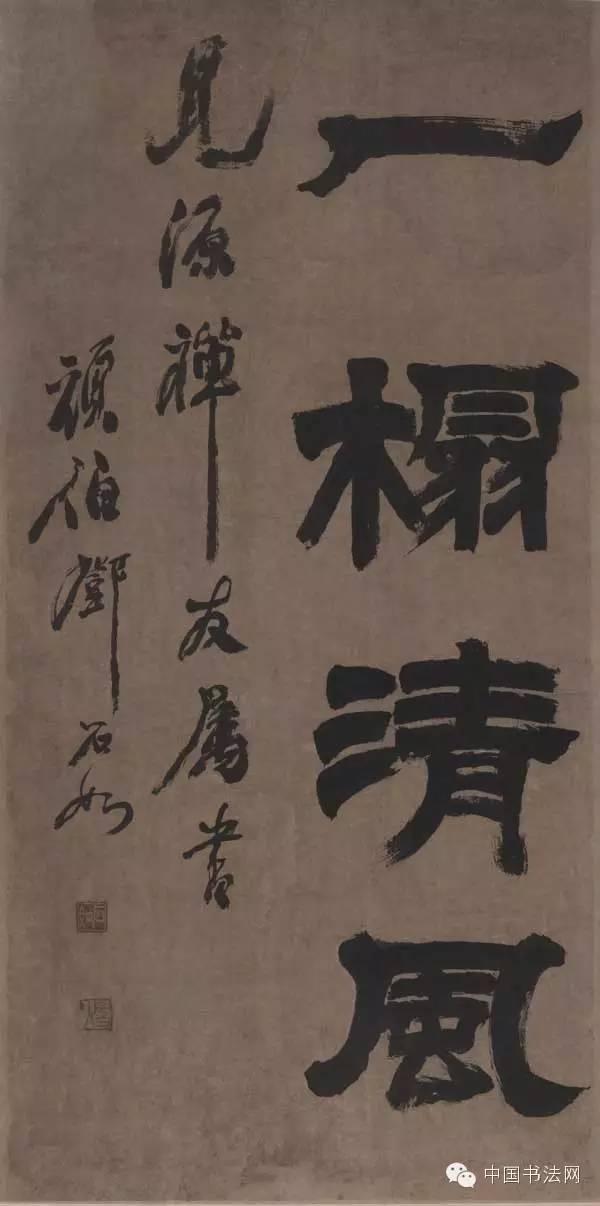 一榻清風
見源禪友属書
頑伯鄧石如
中国书法网